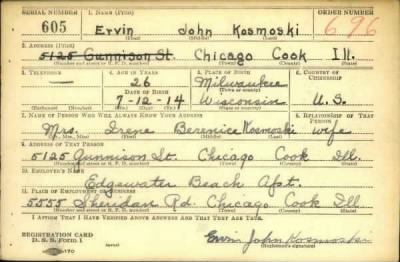 SERIAL NUMBER 1. NAME (Print) ORDER NUMBER
605 Ervin John Kosmoski 696
(First) (Middle) (Last)
2. ADDRESS (Print)
5125 Gunnison St. Chicago Cook Ill.
(Number and street or R. F. D. number) (Town) (County) (State)
3. TELEPHONE 4. AGE IN YEARS 5. PLACE OF BIRTH 6. COUNTRY OF CITIZENSHIP
— 26 Milwaukee
DATE OF BIRTH (Town or county)
7-12-14 Wisconsin U. S.
(Exchange) (Number) (Mo.) (Day) (Yr.) (State or country)
7. NAME OF PERSON WHO WILL ALWAYS KNOW YOUR ADDRESS 8. RELATIONSHIP OF THAT PERSON
Mrs. Irene Berenice Kosmoski wife
(Mr., Mrs., Miss) (First) (Middle) (Last)
9. ADDRESS OF THAT PERSON
5125 Gunnison St. Chicago Cook Ill.
(Number and street or R. F. D. number) (Town) (County) (State)
10. EMPLOYER'S NAME
Edgewater Beach Apt.
11. PLACE OF EMPLOYMENT OR BUSINESS
5555 Sheridan Rd. Chicago Cook Ill.
(Number and street or R. F. D. number) (Town) (County) (State)
I AFFIRM THAT I HAVE VERIFIED ABOVE ANSWERS AND THAT THEY ARE TRUE.
REGISTRATION CARD
D. S. S. FORM 1 Ervin John Kosmoski
(Registrant's signature)